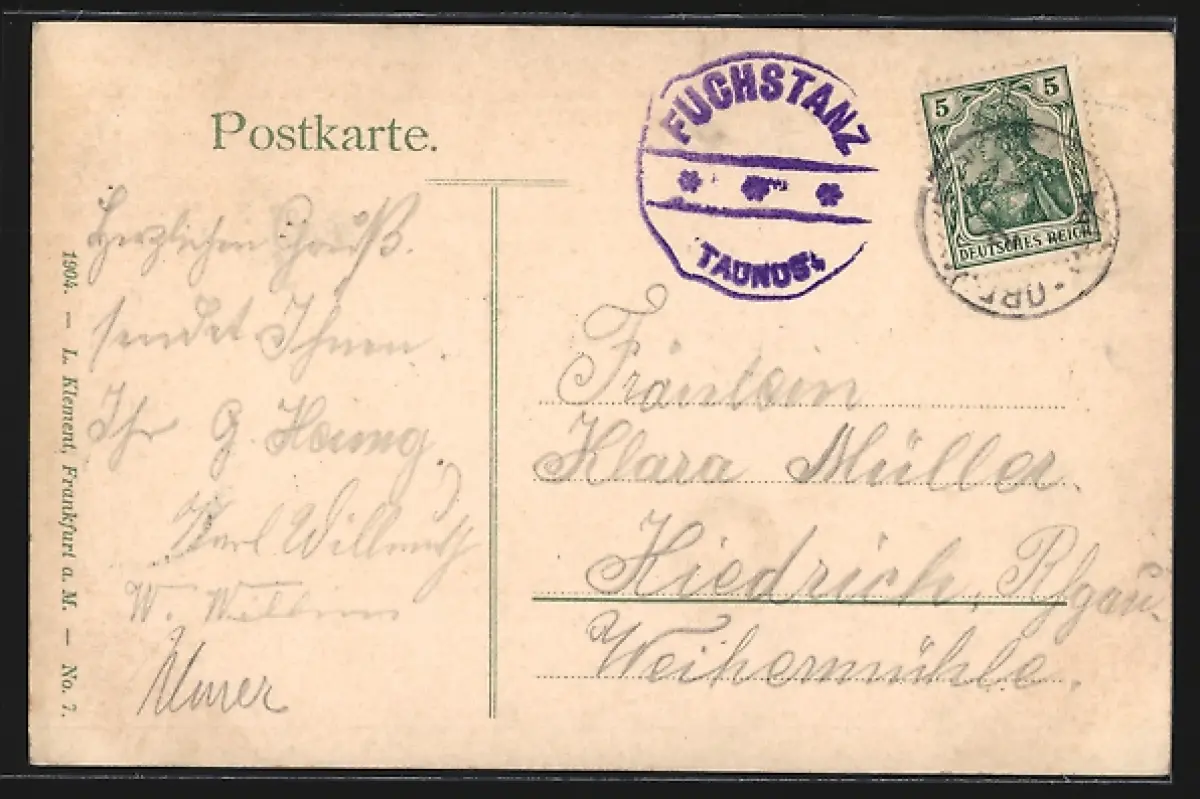 Postkarte.
Herzlichen Gruß.
sendet Ihnen.
Ihr G.
Karl
W.
1904. — L. Klement, Frankfurt a. M. — No. 7.
FUCHSTANZ
TAUNUS.
5 5
DEUTSCHES REICH
Fräulein
Klara Müller.
Kiedrich, Rhgau.
Weihermühle.